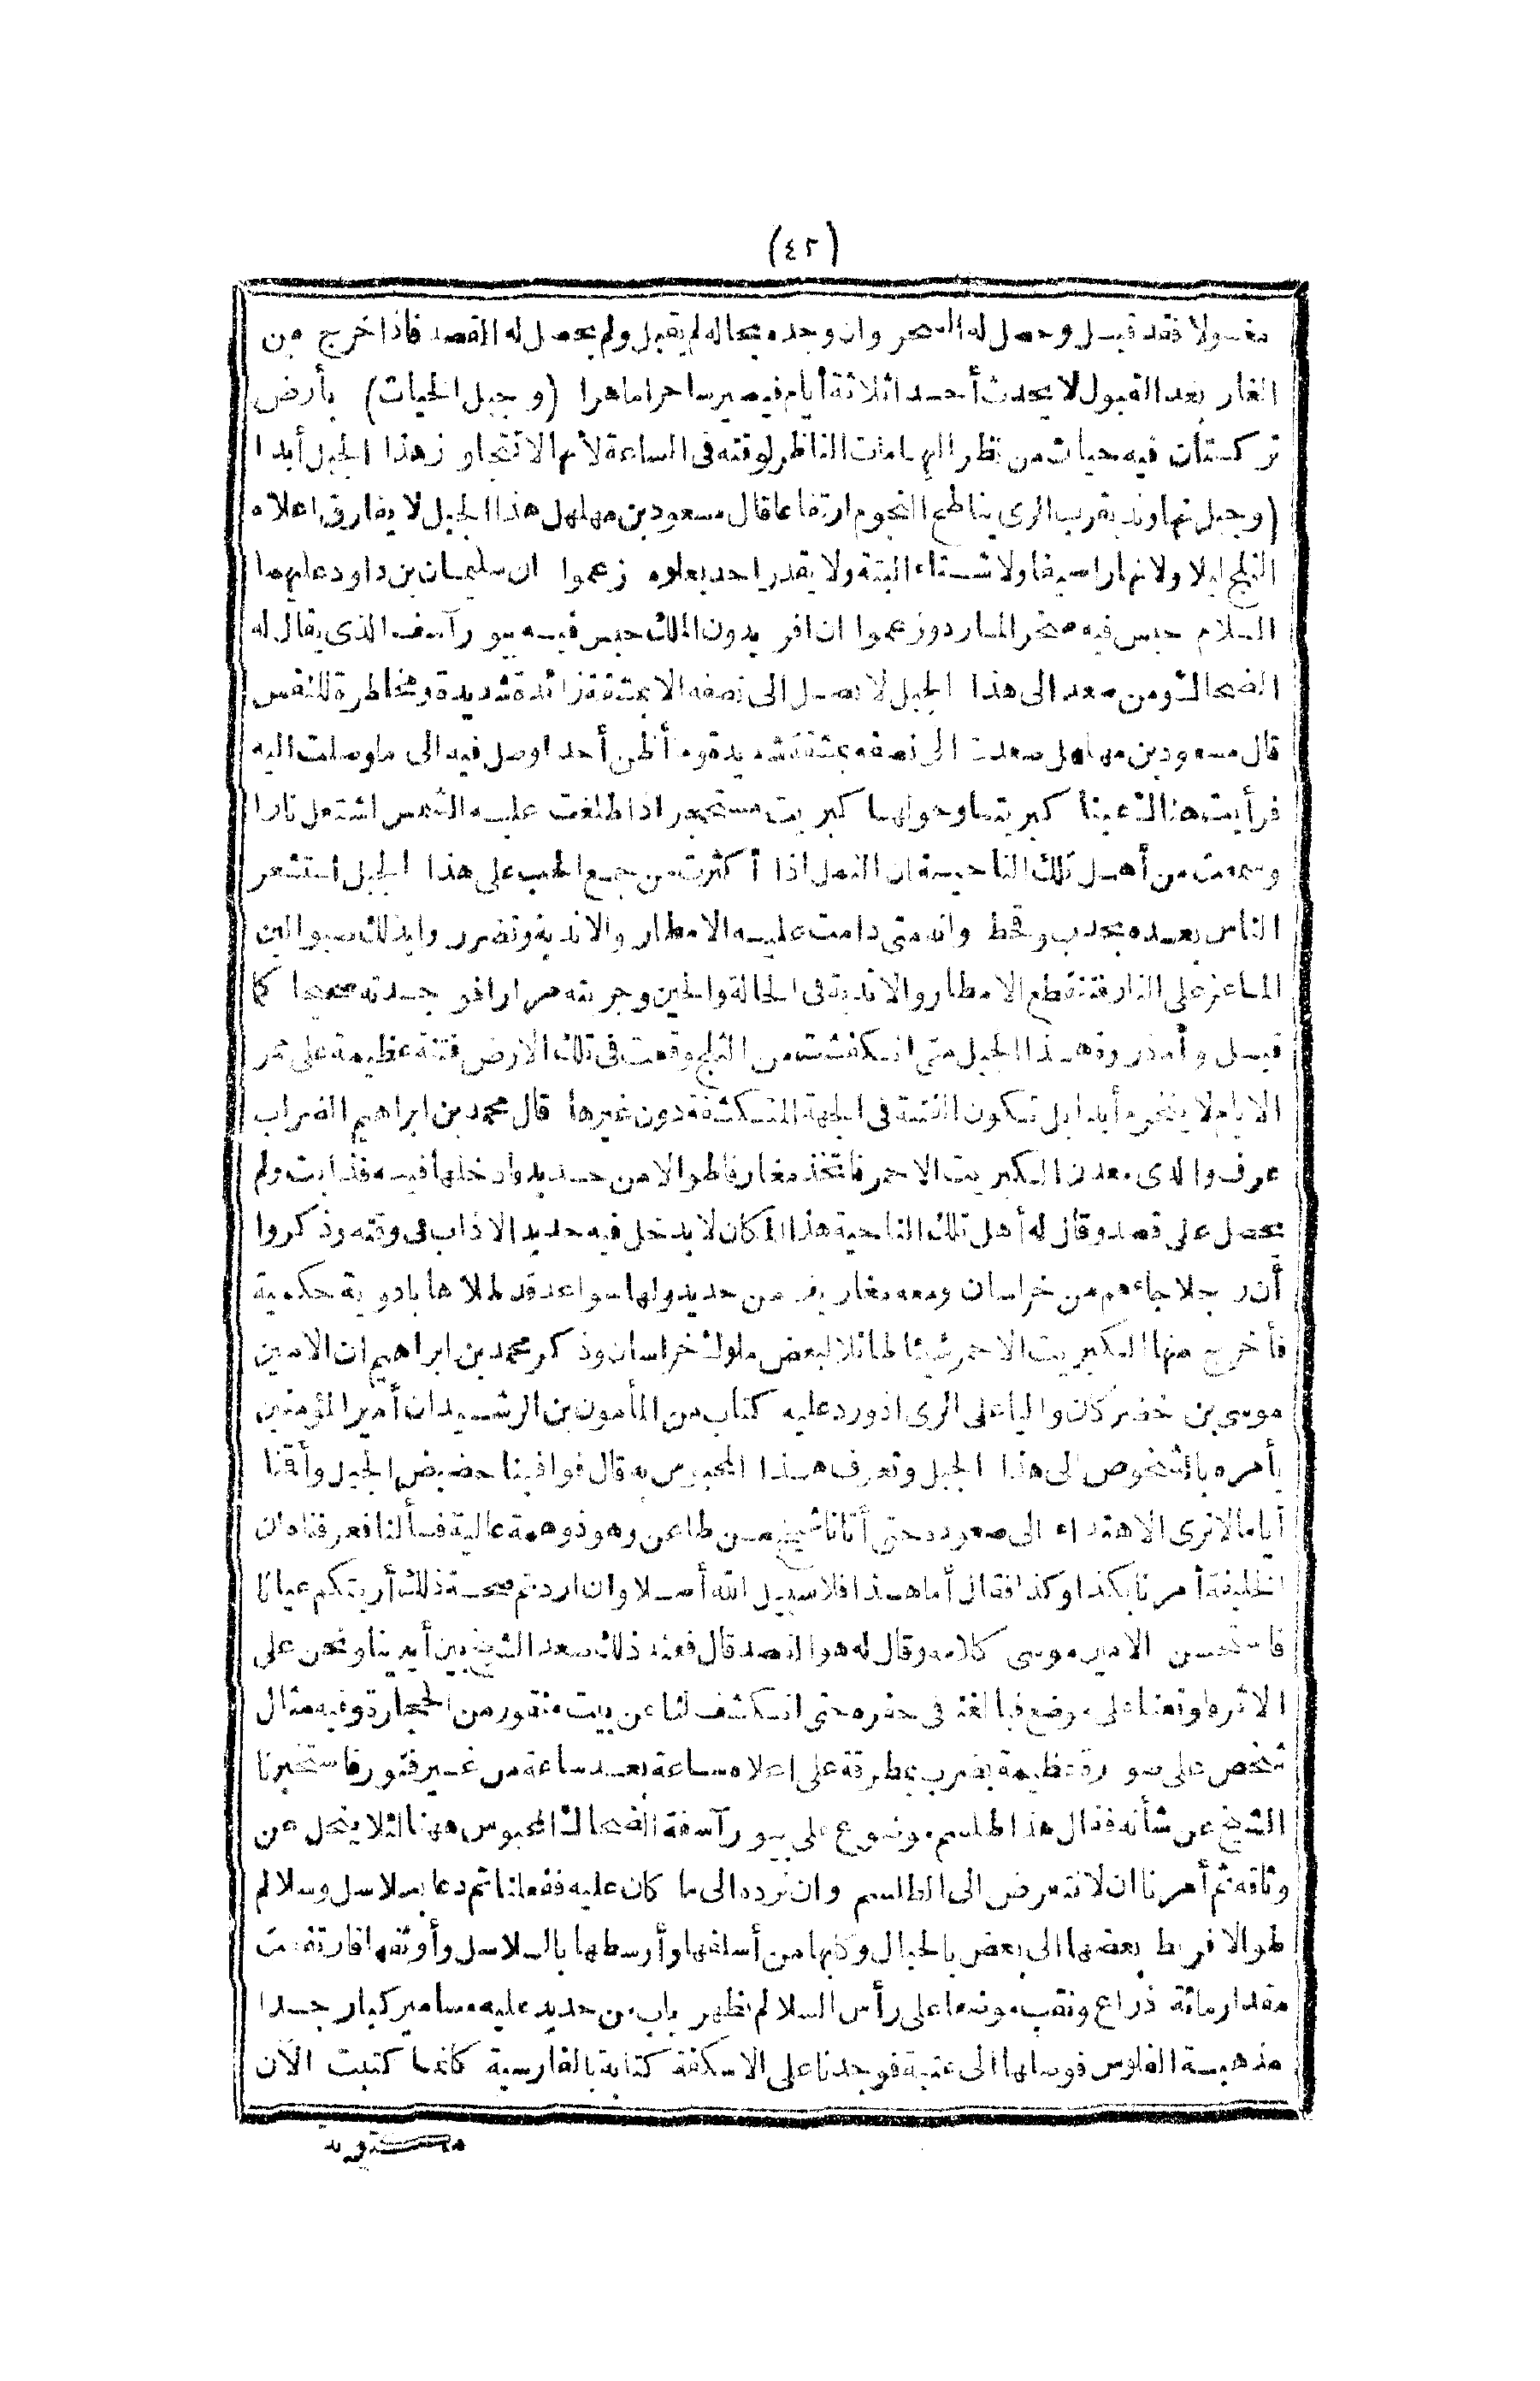 (٤٢)
مغسولا فقد قبل وحصل له السحر وان وجده بحاله لم يقبل ولم يحصل له القصد فاذا خرج من
الغار بعد القبول لا يحدث أحدا ثلاثة أيام فيصير ساحرا ماهرا (وجبل الحيات) بأرض
تركستان فيه حيات من نظر اليها مات الناظر لوقته فى الساعة لأنها لا تتجاوز هذا الجبل أبدا
(وجبل نهاوند بقرب الرى يناطح النجوم ارتفاعا قال مسعود بن مهلهل هذا الجبل لا يفارق اعلاه
الثلج ليلا ولا نهارا صيفا ولا شتاء البتة ولا يقدر احد يعلوه زعموا ان سليمان بن داود عليهما
السلام حبس فيه صخر المارد وزعموا ان افريدون الملك حبس فيه بيورآسف الذى يقال له
الضحاك ومن صعد الى هذا الجبل لا يصل الى نصفه الا بمشقة زائدة شديدة ومخاطرة للنفس
قال مسعود بن مهلهل صعدت الى نصفه بمشقة شديدة وما أظن أحدا وصل فيه الى ما وصلت اليه
فرأيت هناك عينا كبريتها وحولها كبريت مستحجر اذا طلعت عليه الشمس اشتعل نارا
وسمعت من أهل تلك الناحية ان النمل اذا أكثرت من جمع الحب على هذا الجبل استشعر
الناس بعده بجدب وقحط وانه متى دامت عليه الامطار والاندية وتضرروا بذلك صبوا لبن
الماعز على النار فتنقطع الامطار والاندية فى الحالة والحين وجربته مرارا فوجدته صحيحا كما
قيل وأما ذروة هذا الجبل متى انكشفت من الثلج وقعت فى تلك الارض فتنة عظيمة على ممر
الايام لا ينخرم أبدا بل تكون الفتنة فى الجهة المنكشفة دون غيرها قال محمد بن ابراهيم الضراب
عرف والدى معدن الكبريت الاحمر فاتخذ مغارفا طوالا من حديد وادخلها فيه فذابت ولم
يحصل على قصد وقال له أهل تلك الناحية هذا المكان لا يدخل فيه حديد الا ذاب فى وقته وذكروا
أن رجلا جاءهم من خراسان ومعه مغاريف من حديد ولها سواعد قد طلاها بادوية حكمية
فأخرج منها الكبريت الاحمر شيئا طائلا لبعض ملوك خراسان وذكر محمد بن ابراهيم ان الامين
موسى بن خضر كان واليا على الرى اذ ورد عليه كتاب من المأمون بن الرشيد ان أمير المؤمنين
يأمره بالشخوص الى هذا الجبل وتعرف هذا المحبوس به قال فوافينا حضيض الجبل وأقمنا
أياما لا نرى الاهتداء الى صعوده حتى أتانا شيخ مسن طاعن وهو ذو همة عالية فسألنا فعرفناه ان
الخليفة أمرنا بكذا وكذا فقال أما هذا فلا سبيل الله أصلا وان اردتم صحة ذلك أريتكم عيانا
فاستحسن الامير موسى كلامه وقال له هو القصد قال فعند ذلك صعد الشيخ بين أيدينا ونحن على
الاثر فاوقفنا على موضع فبالغنا فى حفره حتى انكشف لنا عن بيت منقور من الحجارة وفيه مثال
شخص على صورة عظيمة يضرب بمطرقة على اعلاه ساعة بعد ساعة من غير فتور فاستخبرنا
الشيخ عن شأنه فقال هذا طلسم موضوع على بيورآسفة الضحاك المحبوس ههنا لئلا ينحل من
وثاقه ثم أمرنا ان لا نتعرض الى الطلسم وان نرده الى ما كان عليه ففعلنا ثم دعا بسلاسل وسلالم
طوالا فربط بعضها الى بعض بالحبال وكلبها من أسافلها وأوسطها بالسلاسل وأوثقها فارتفعت
مقدار مائة ذراع ونقب موضعا على رأس السلالم فظهر باب من حديد عليه مسامير كبار جدا
مذهبة الفلوس فوصلها الى عتبة فوجدنا على الاسكفة كتابة بالفارسية كأنما كتبت الآن